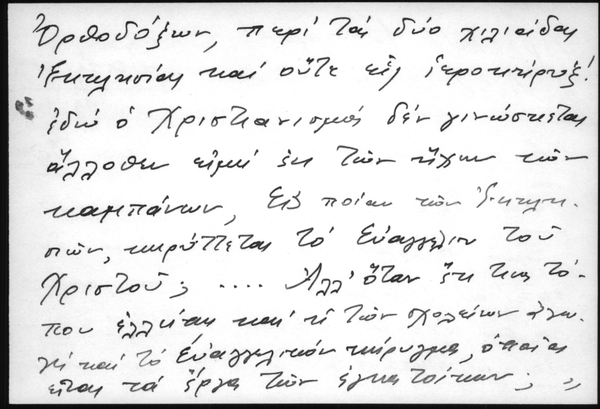 Ὀρθοδόξων, περί τάς δύο χιλιάδας
Ἐκκλησίας καί οὔτε εἷς ἱεροκήρυξ!
ἐδῶ ὁ Χριστιανισμός δέν γινώσκεται
ἄλλοθεν εἰμή ἐκ τῶν ἤχων τῶν
καμπάνων, Εἰς ποίαν τῶν Ἐκκλη-
σιῶν, κηρύττεται τό Εὐαγγέλιον τοῦ
Χριστοῦ; .... Ἀλλ' ὅταν ἔκ τινος τό-
που ἐλλείπῃ καί ἡ τῶν σχολείων ἀγω-
γή καί τό Εὐαγγελικόν κήρυγμα, ὁποῖα
εἶναι τά ἔργα τῶν ἐγκατοίκων; "